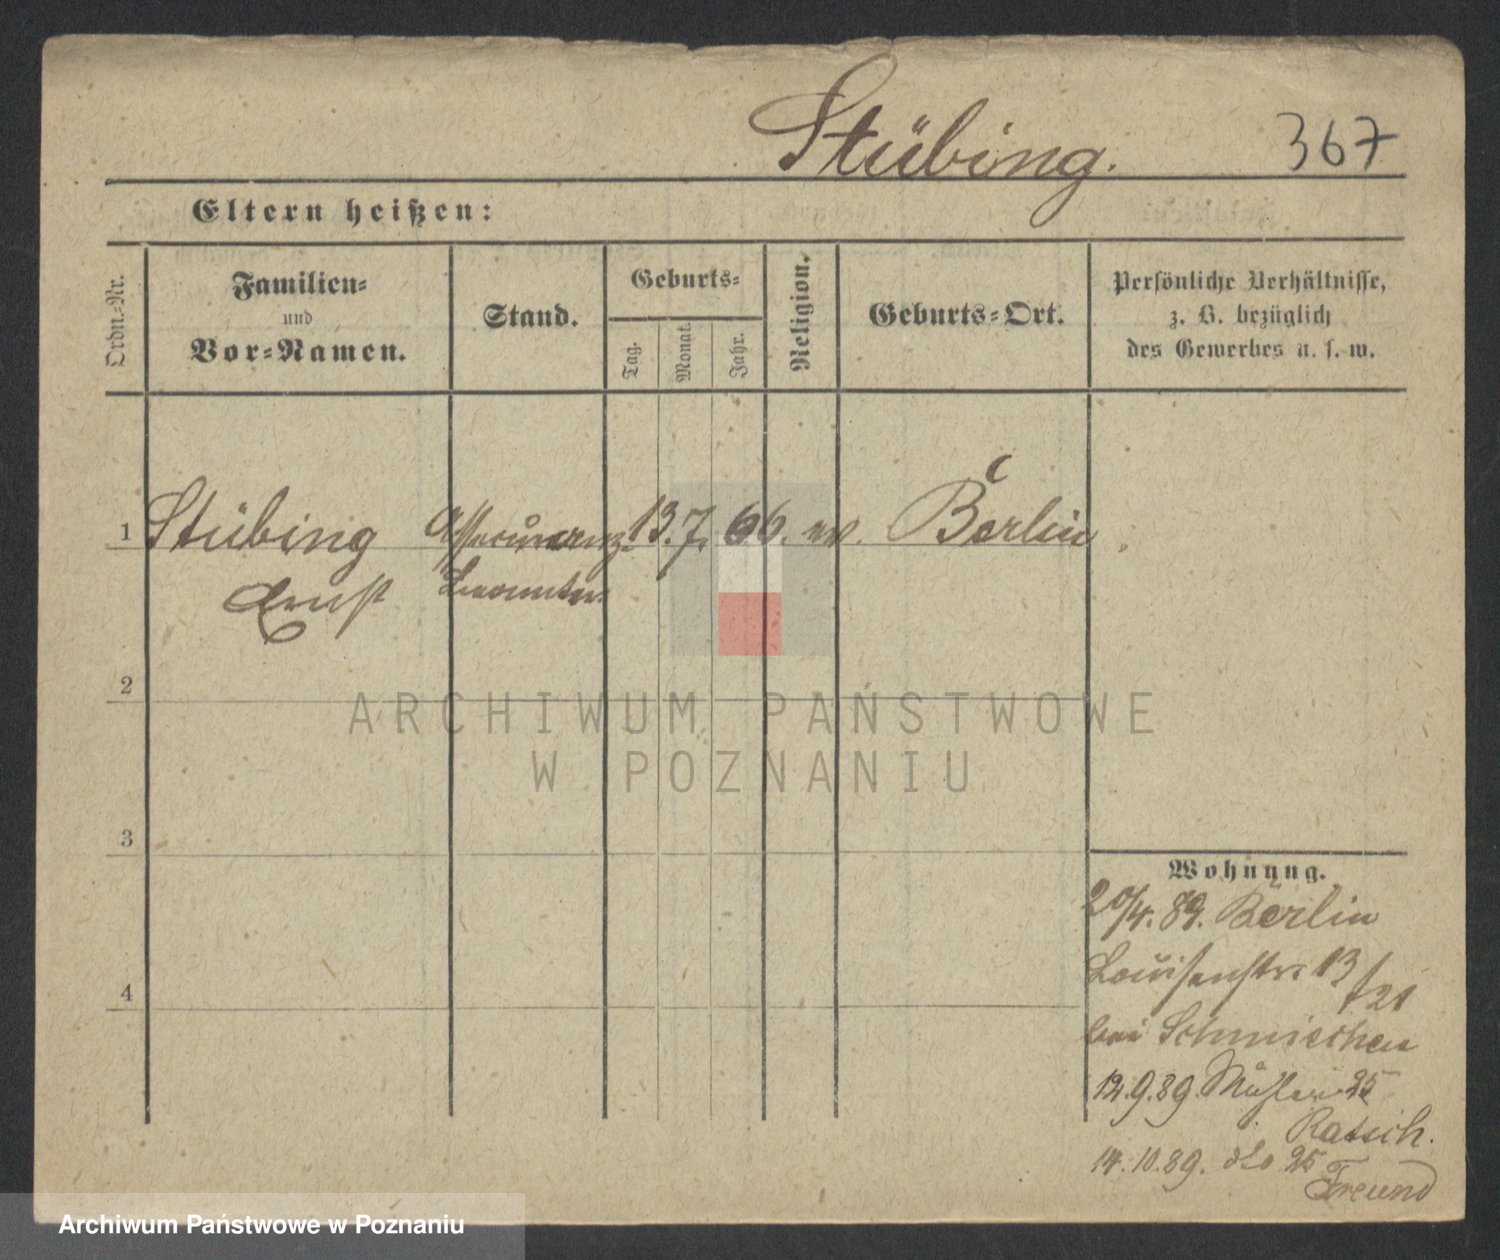 Stübing.
367
Eltern heißen:
Ordn.-Nr.
Familien-
und
Vor-Namen.
Stand.
Geburts-
Tag.
Monat.
Jahr.
Religion.
Geburts-Ort.
Persönliche Verhältnisse,
z. B. bezüglich
des Gewerbes u. s. w.
1
Stübing Assecuranz- 13. 7. 66. ev. Berlin
Ernst Beamter
2
3
4
Wohnung.
20/4. 89. Berlin
Louisenstr. 13/21
bei Schmiechen
12.9.89. 25
Ratsch.
14.10.89. dto 25
Freund
ARCHIWUM PAŃSTWOWE
W POZNANIU
Archiwum Państwowe w Poznaniu